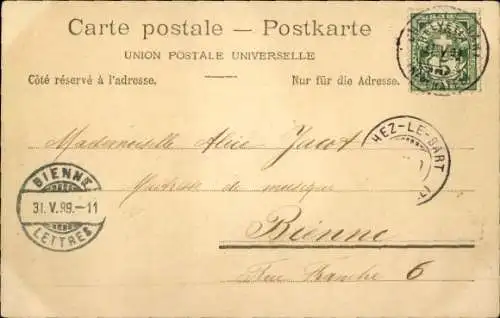 Carte postale — Postkarte
UNION POSTALE UNIVERSELLE
Côté réservé à l'adresse. Nur für die Adresse.
HEZ-LE-BART
Mademoiselle Alice Jacot
Maitresse de musique
Bienne
Rue Franche 6
BIENNE
31. V. 99.-11
LETTRES